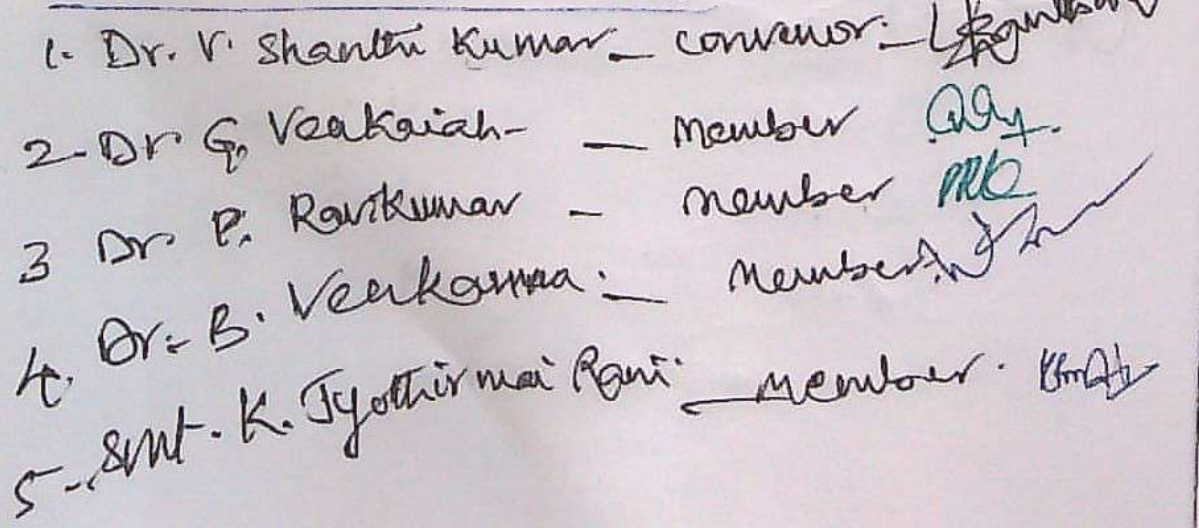 1. Dr. V. Shanthi Kumar – convenor:–
2. Dr G. Venkaiah – – Member
3 Dr. P. Ravikumar – Member
4. Dr. B. Venkamma. – Member
5. Smt. K. Jyothirmai Rani. – Member.